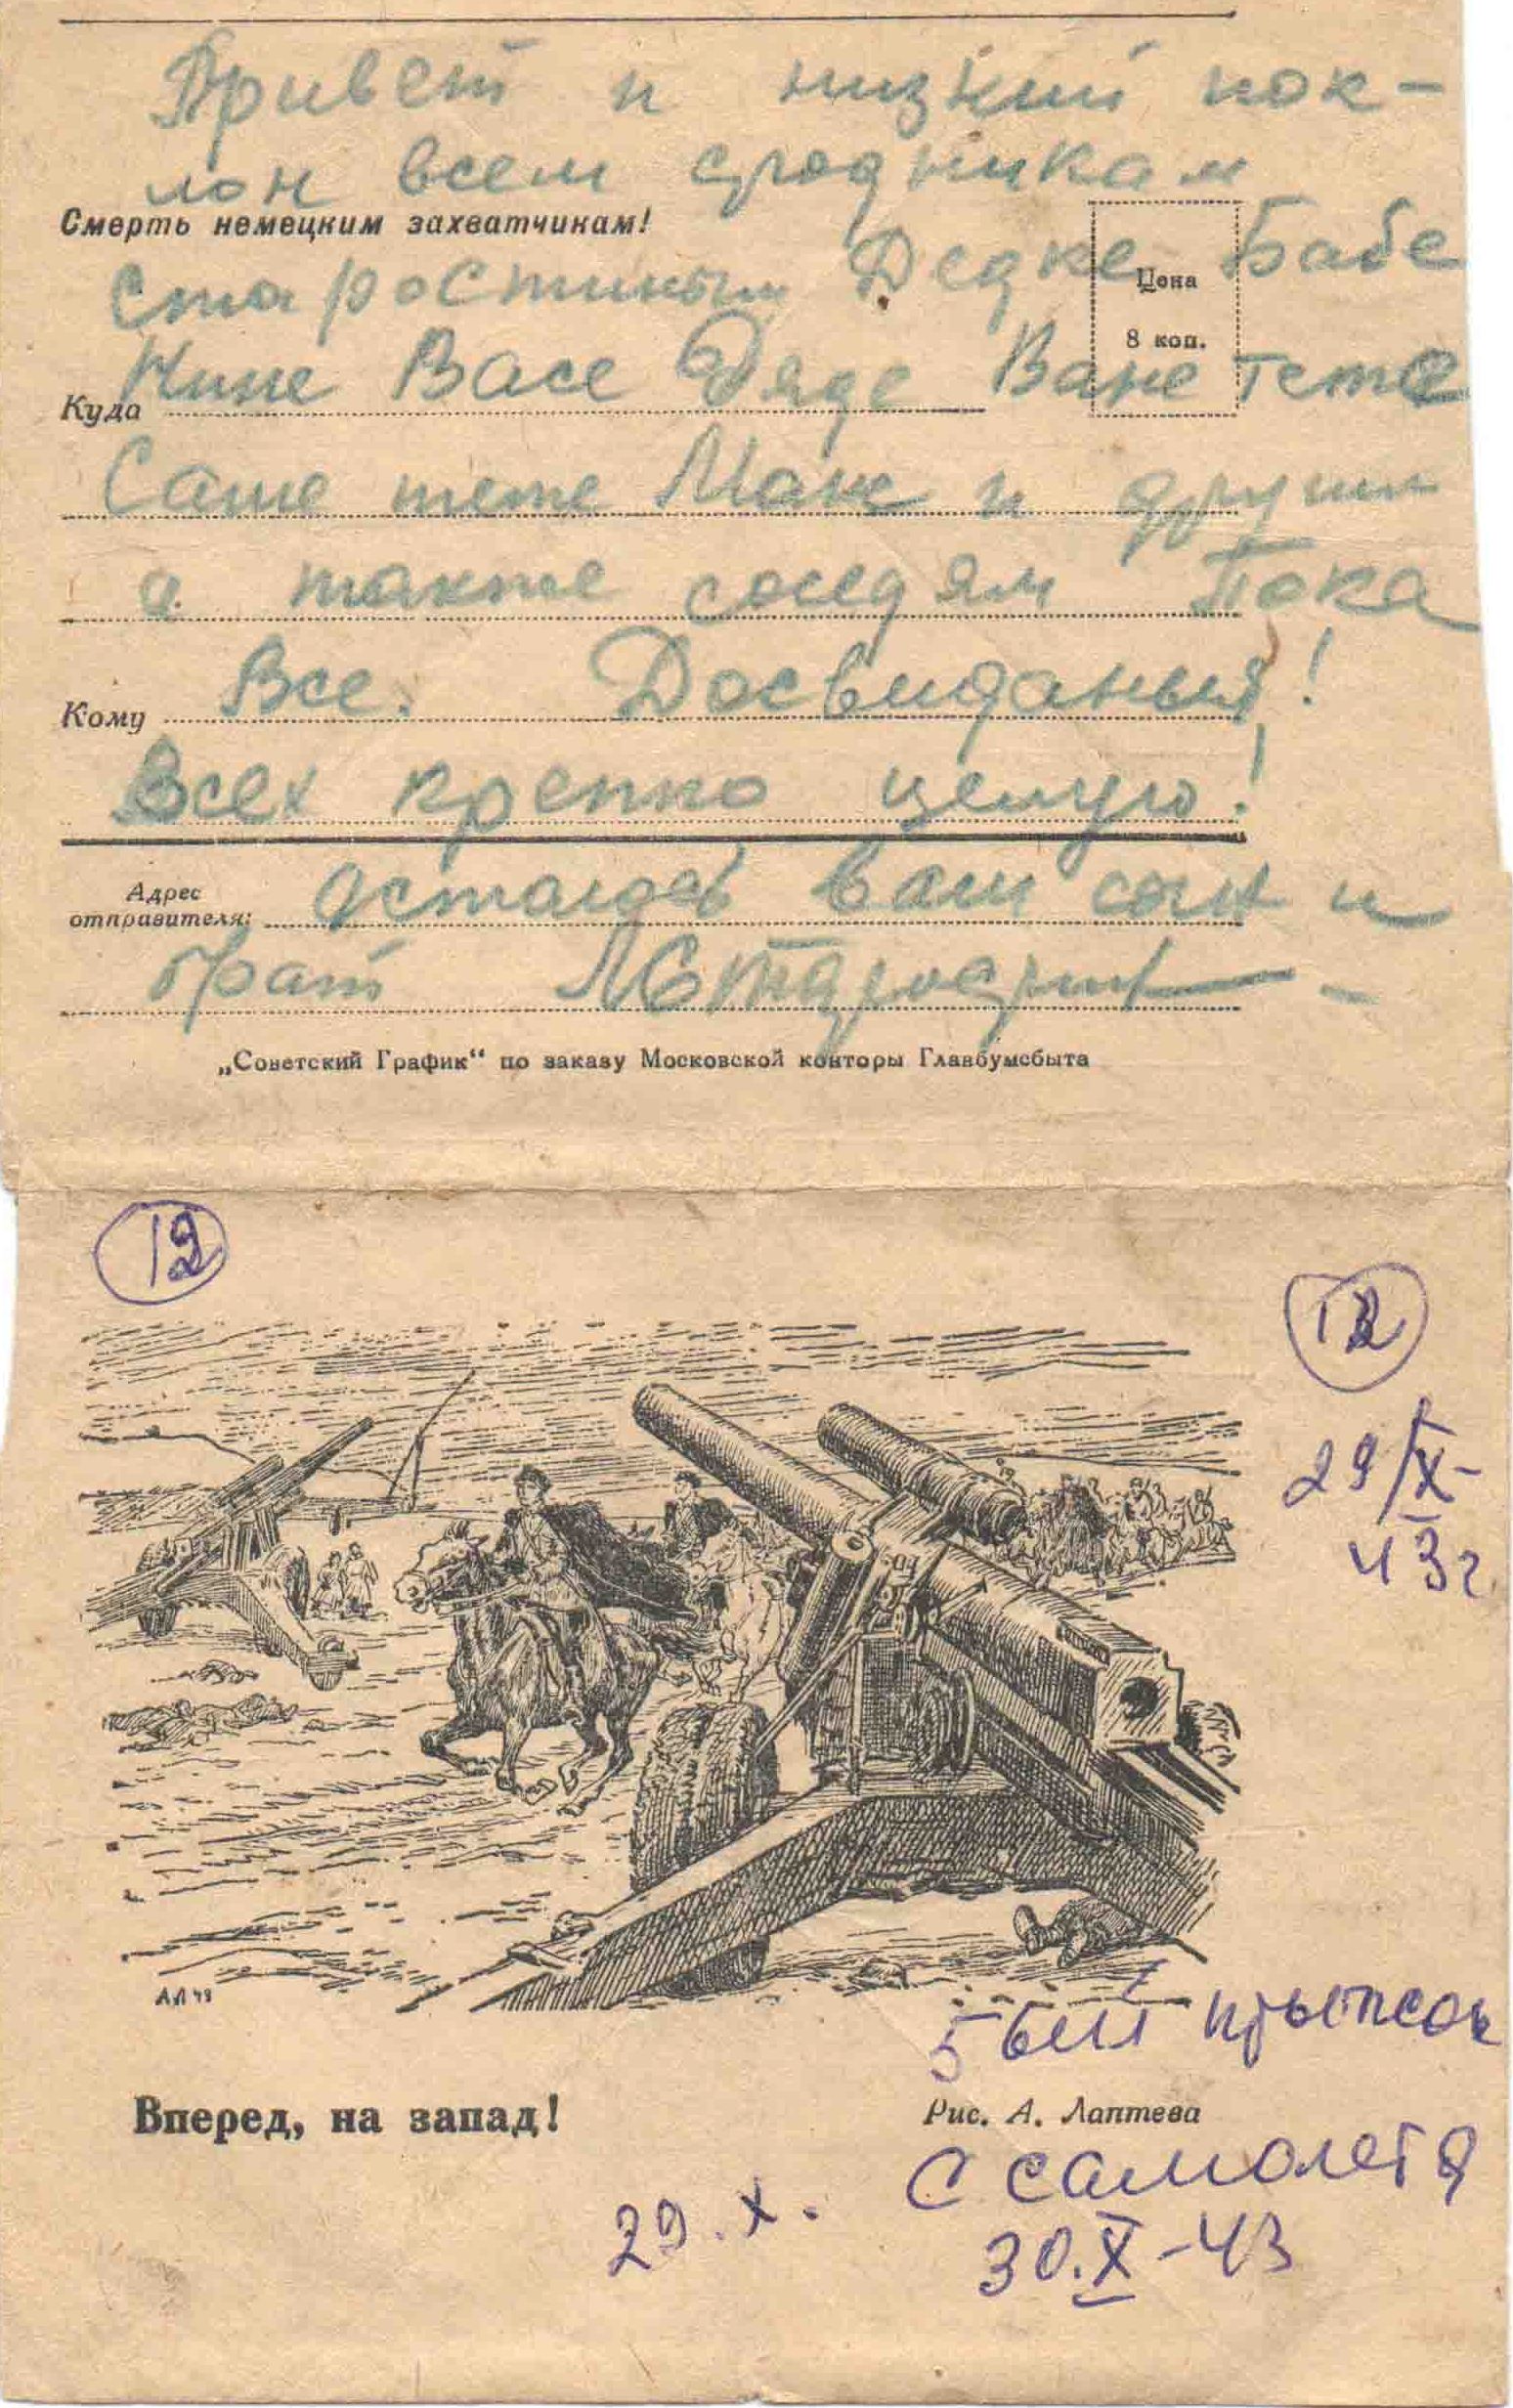 Привет и низкий пок-
лон всем сродникам
Смерть немецким захватчикам!
Старостиным Дедке Бабе
Цена
8 коп.
Нине Васе Дяде Ване Тете
Куда
Саше тете Мане и другим
а также соседям Пока
Все. Досвиданья!
Кому
Всех крепко целую!
Адрес
отправителя:
Остаюсь ваш сын и
брат
„Советский График“ по заказу Московской конторы Главбумсбыта
12
12
29/X-
43г
АЛ 43
5 ый прыжок
Вперед, на запад!
Рис. А. Лаптева
С самолета
29.X.
30.X-43